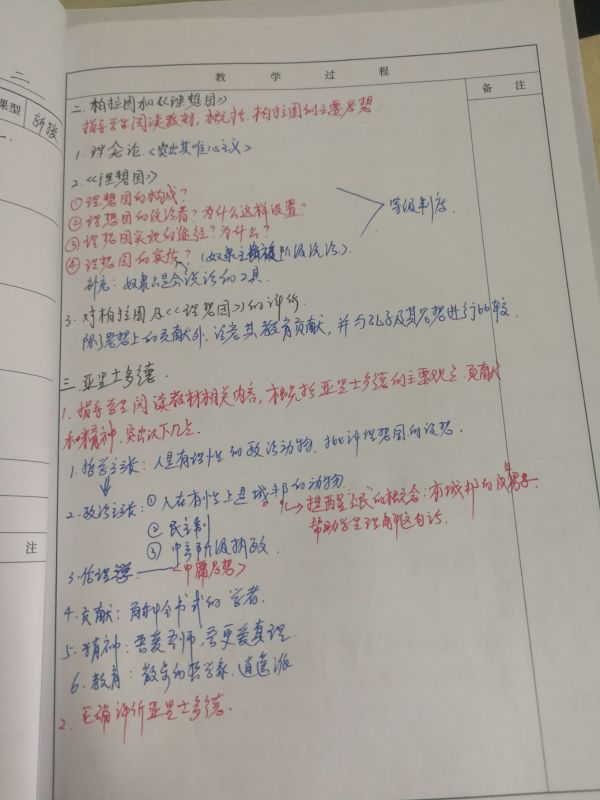 二
课型
新授
注
教 学 过 程
备 注
二. 柏拉图和《理想国》
指导学生阅读教材, 概括柏拉图的主要思想.
1. 理念论. <突出其唯心主义>
2.《理想国》
① 理想国的构成?
② 理想国的统治者? 为什么这样设置?
等级制度.
③ 理想国实现的途径? 为什么?
④ 理想国的实质? (奴隶主阶级统治)
补充: 奴隶只是会说话的工具.
3. 对柏拉图及《理想国》的评价.
除了思想上的贡献外, 注意其教育贡献, 并与孔子及其思想进行比较.
三. 亚里士多德.
1. 指导学生阅读教材相关内容, 概括亚里士多德的主要观点. 贡献
和精神. 突出以下几点.
1. 哲学主张: 人是有理性的政治动物. 批评理想国的设想.
2. 政治主张: ① 人在本性上是城邦的动物.
→ 城邦的
帮助学生理解这句话.
② 民主制
③ 中产阶级执政.
3. 伦理学. <中庸思想>
4. 贡献: 百科全书式的学者.
5. 精神: 吾爱吾师, 吾更爱真理
6. 教育: 散步的哲学家. 逍遥派
2. 正确评价亚里士多德.